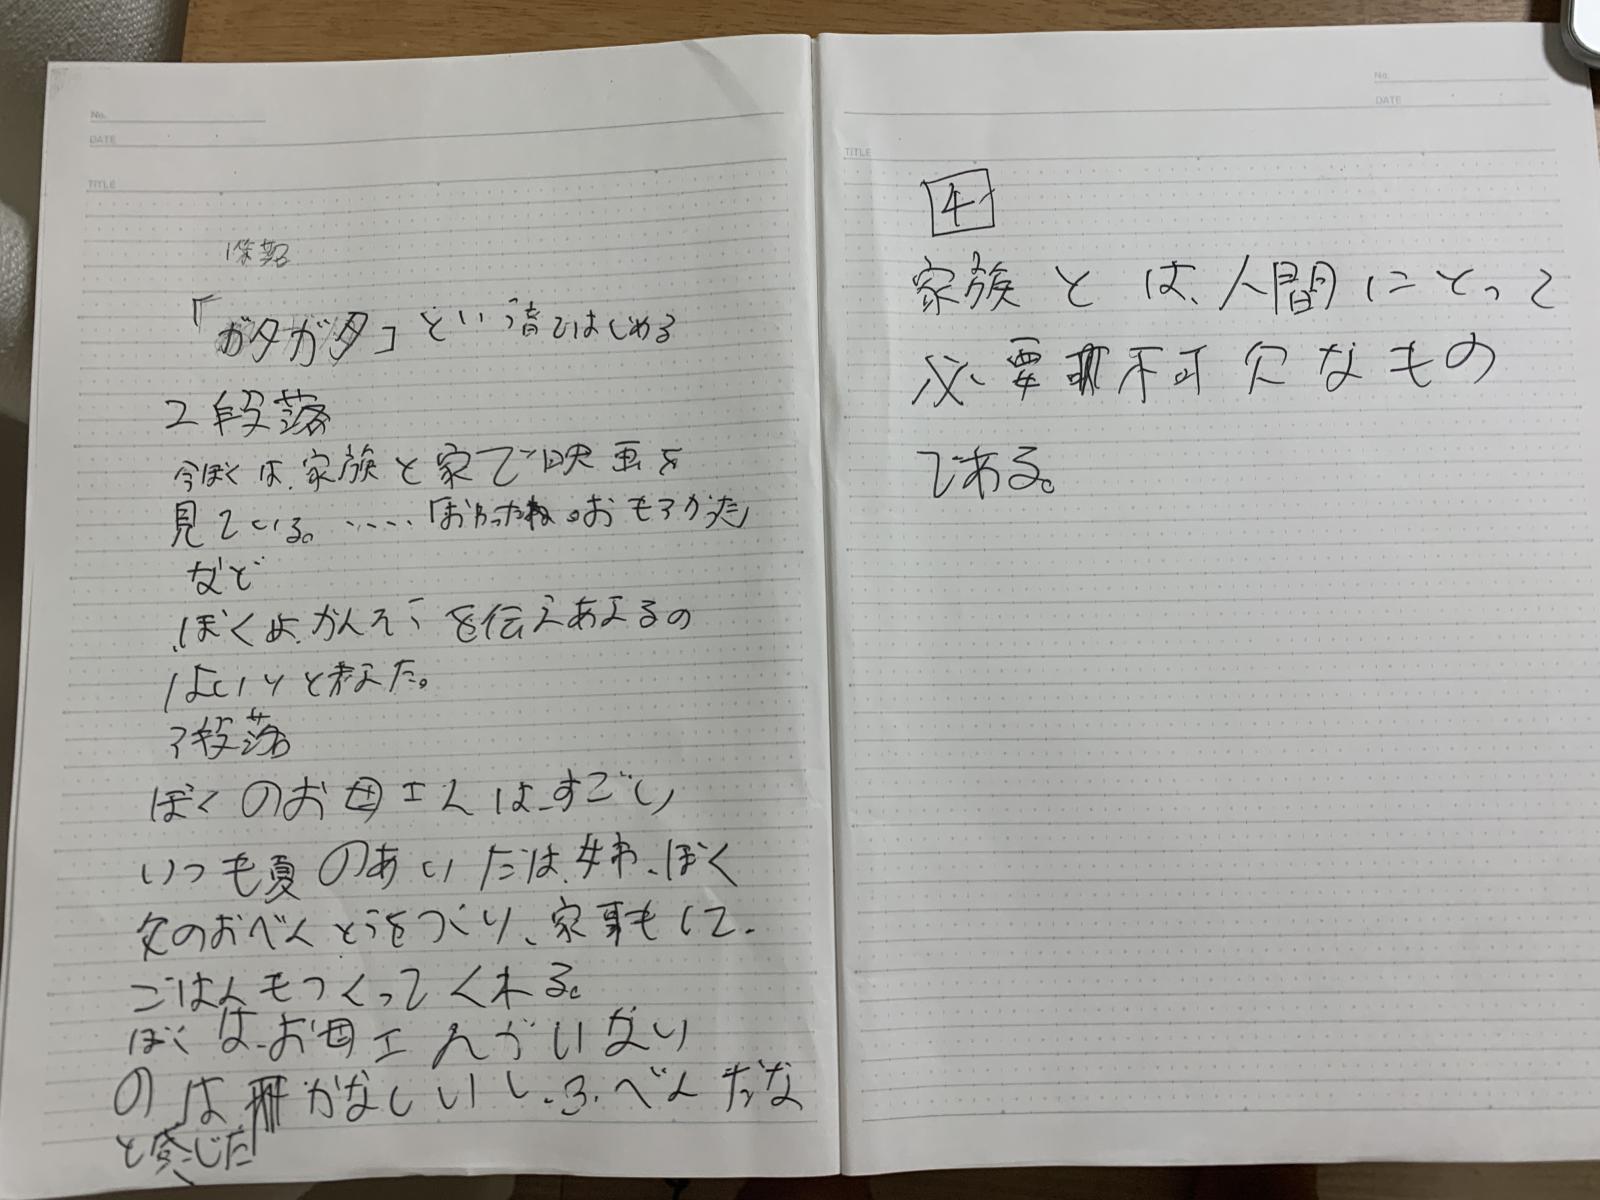 No.
DATE
TITLE
1段落
「ガタガタ」という音ではじめる
2段落
今ぼくは、家族と家で映画を
見ている。‥‥「おわったね。おもろかった」
など
ぼくは、かんそうを伝えあえるの
はいいと考えた。
3段落
ぼくのお母さんは、すごい
いつも夏のあいだは、姉、ぼく
父のおべんとうをつくり、家事もして、
ごはんもつくってくれる。
ぼくは、お母さんがいない
のはかなしいし、ふべんだな
と感じた
No.
DATE
TITLE
4
家族とは、人間にとって
必要不可欠なもの
である。